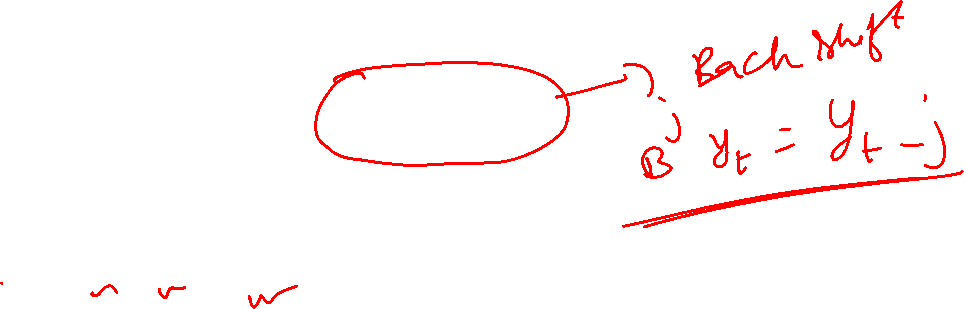 Back shift
B^j y_t = y_{t-j}